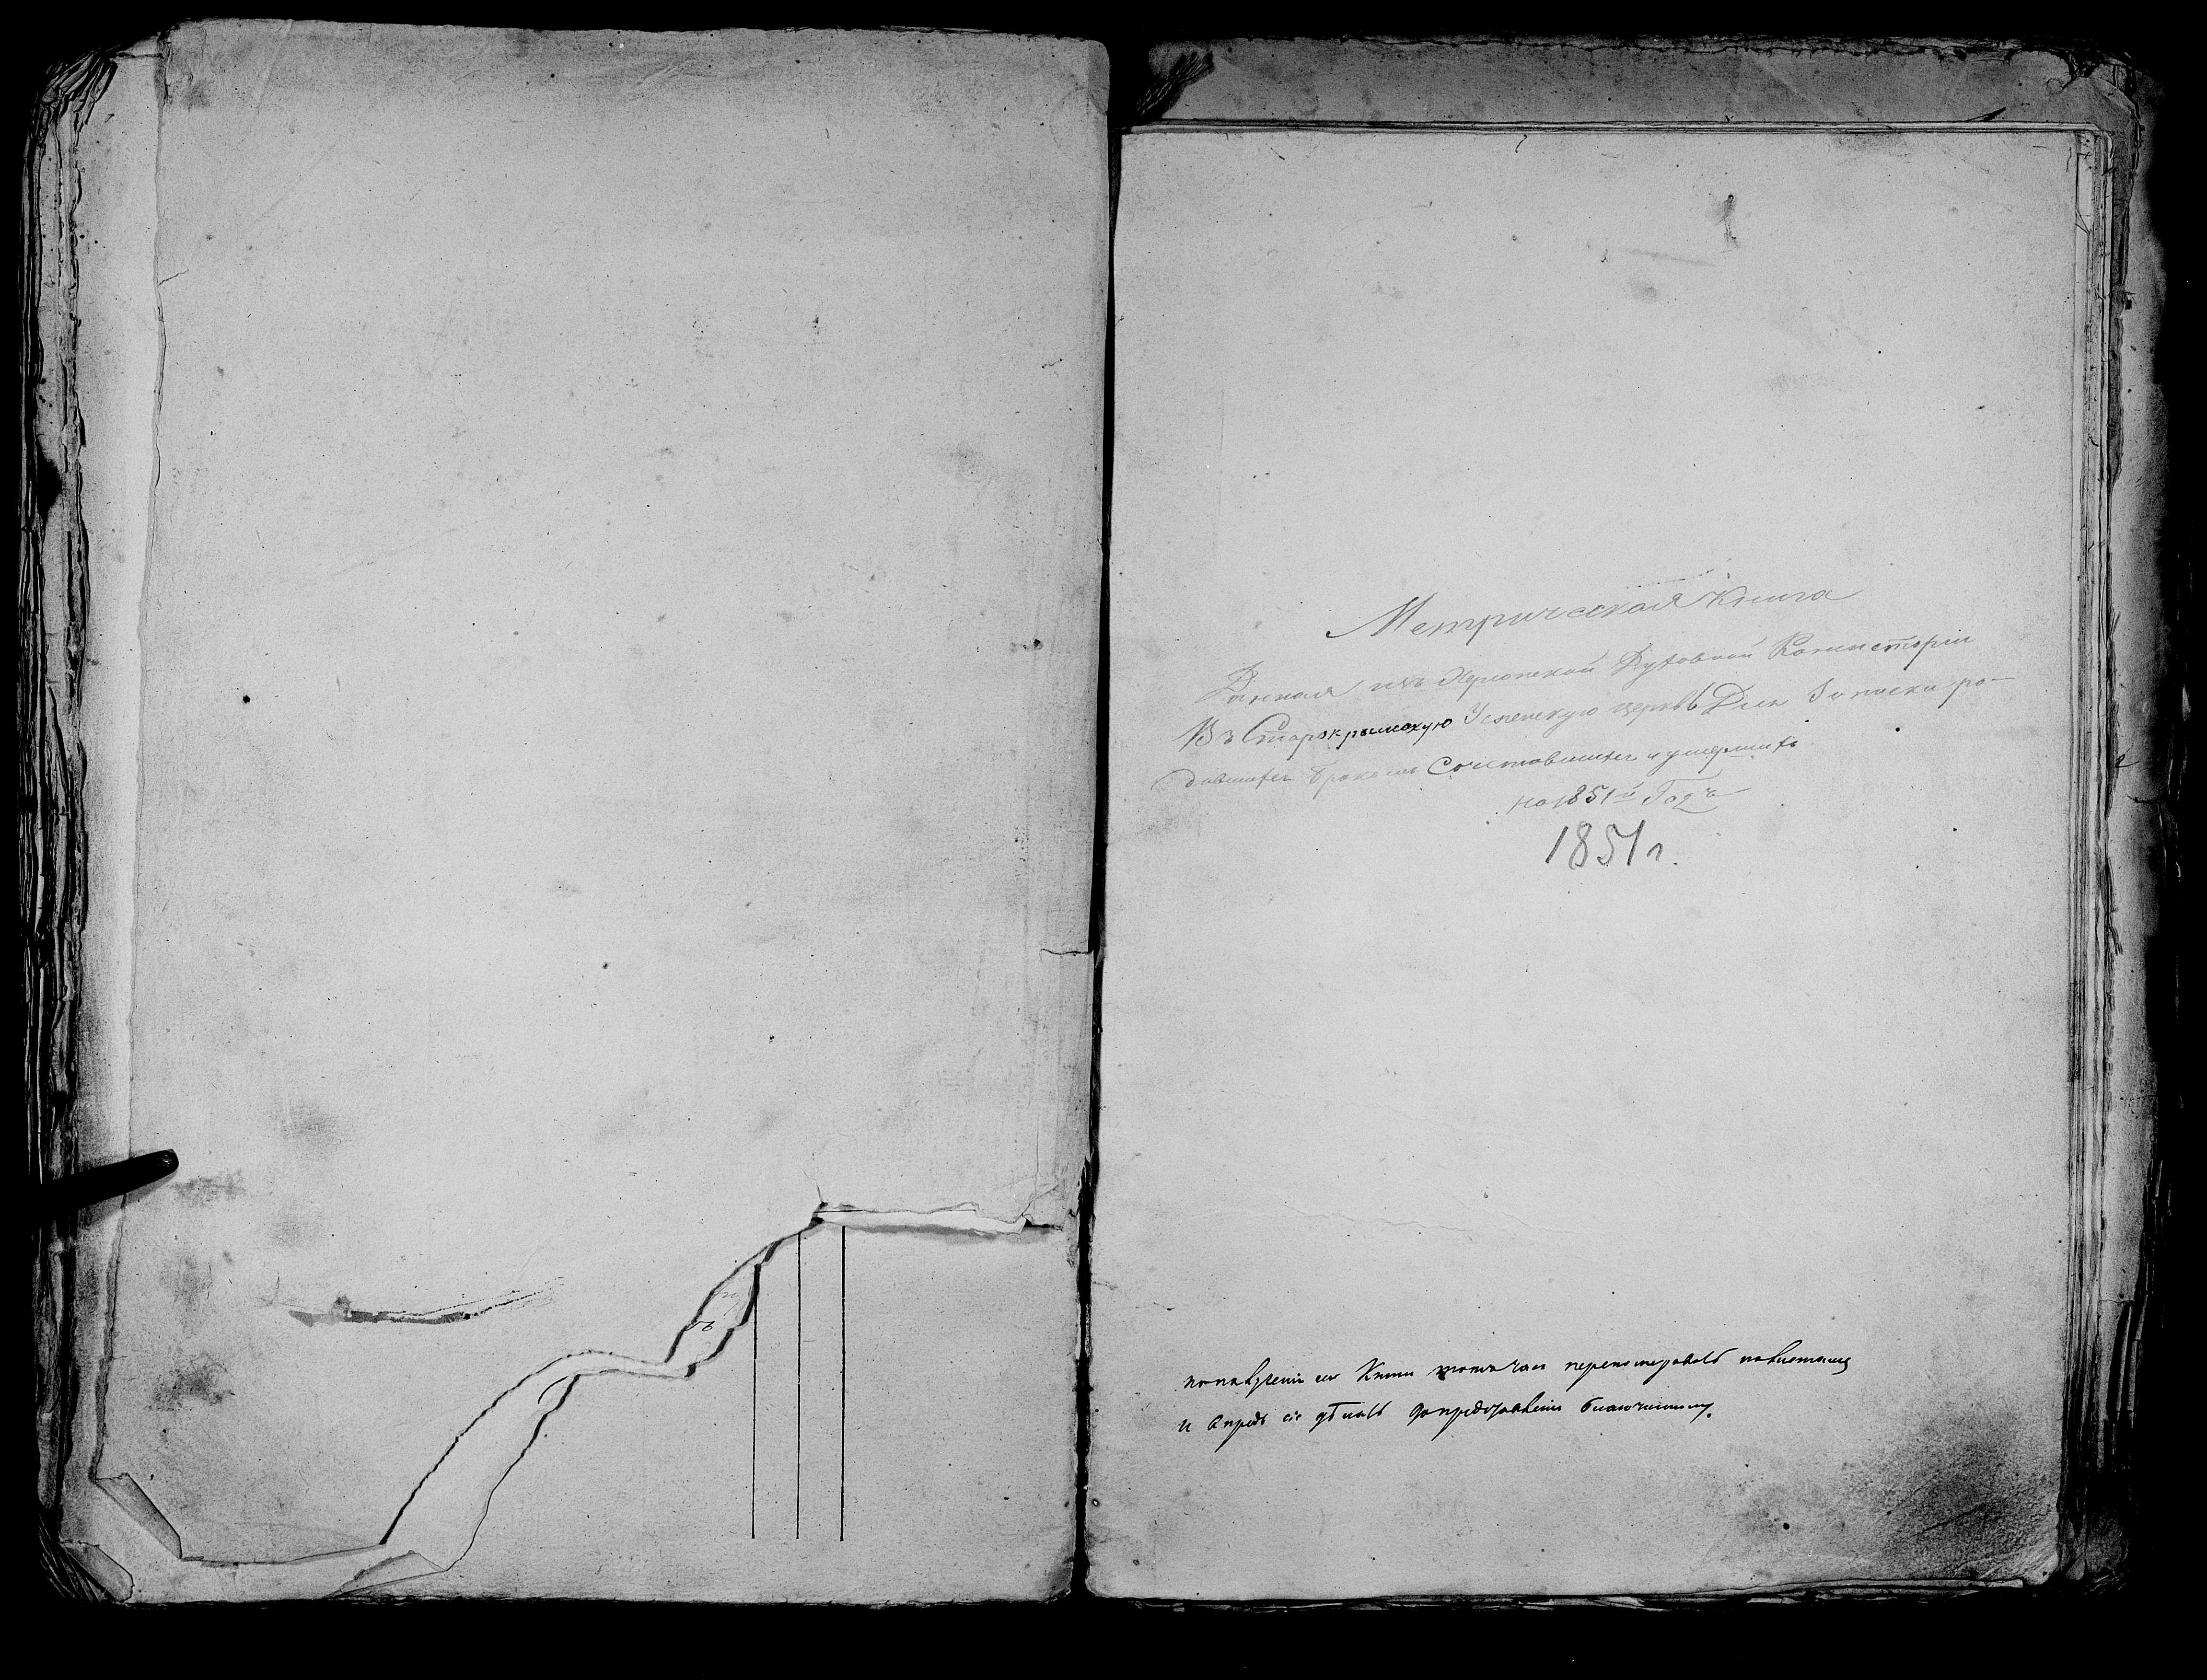 1
Метрическая Книга
Данная изъ Херсонской Духовной Консисторіи
Въ Старокрымскую Успенскую церковь Для Записки ро-
дившихся бракомъ Сочетавшихся и умершихъ
на 1851й Годъ
1851 г.
по получении сей Книги тотъ часъ перенумеровать
и впредь сіе дѣлать благочинному.